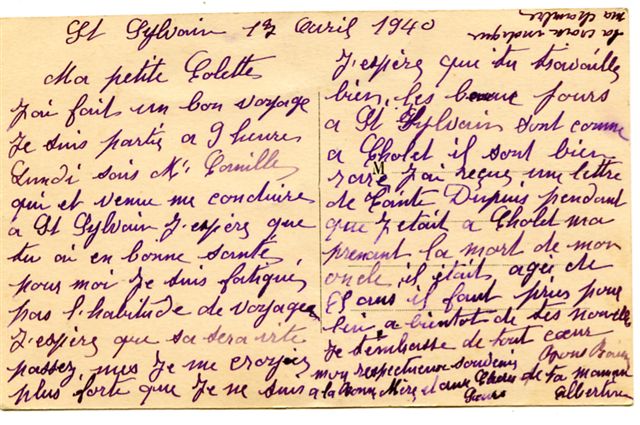 St Sylvain 17 Avril 1940
la croix indique
ma chambre
Ma petite Colette
J'ai fait un bon voyage
Je suis partis a 9 heures
Lundi soir Mr Cornille
qui et venue me conduire
a St Sylvain J'espère que
tu ai en bonne santé,
pour moi Je suis fatigué,
pas l'habitude de voyager
J'espère que sa sera vite
passez, mes Je me croyais
plus forte que Je ne suis
J'espère que tu travailles
bien, les beaux jours
a St Sylvain sont comme
a Cholet il sont bien
rare J'ai reçue une lettre
de Tante Dupuis pendant
que J'etait a Cholet ma
prenant la mort de mon
oncle, il était agée de
ans il faut priez pour
lui, a bientot de tes nouvelles
Je t'embrasse de tout cœur
mon respectueux souvenir Bons Baisers
a la Bonne Mère et aux Chères de ta maman
Sœurs Albertine
M